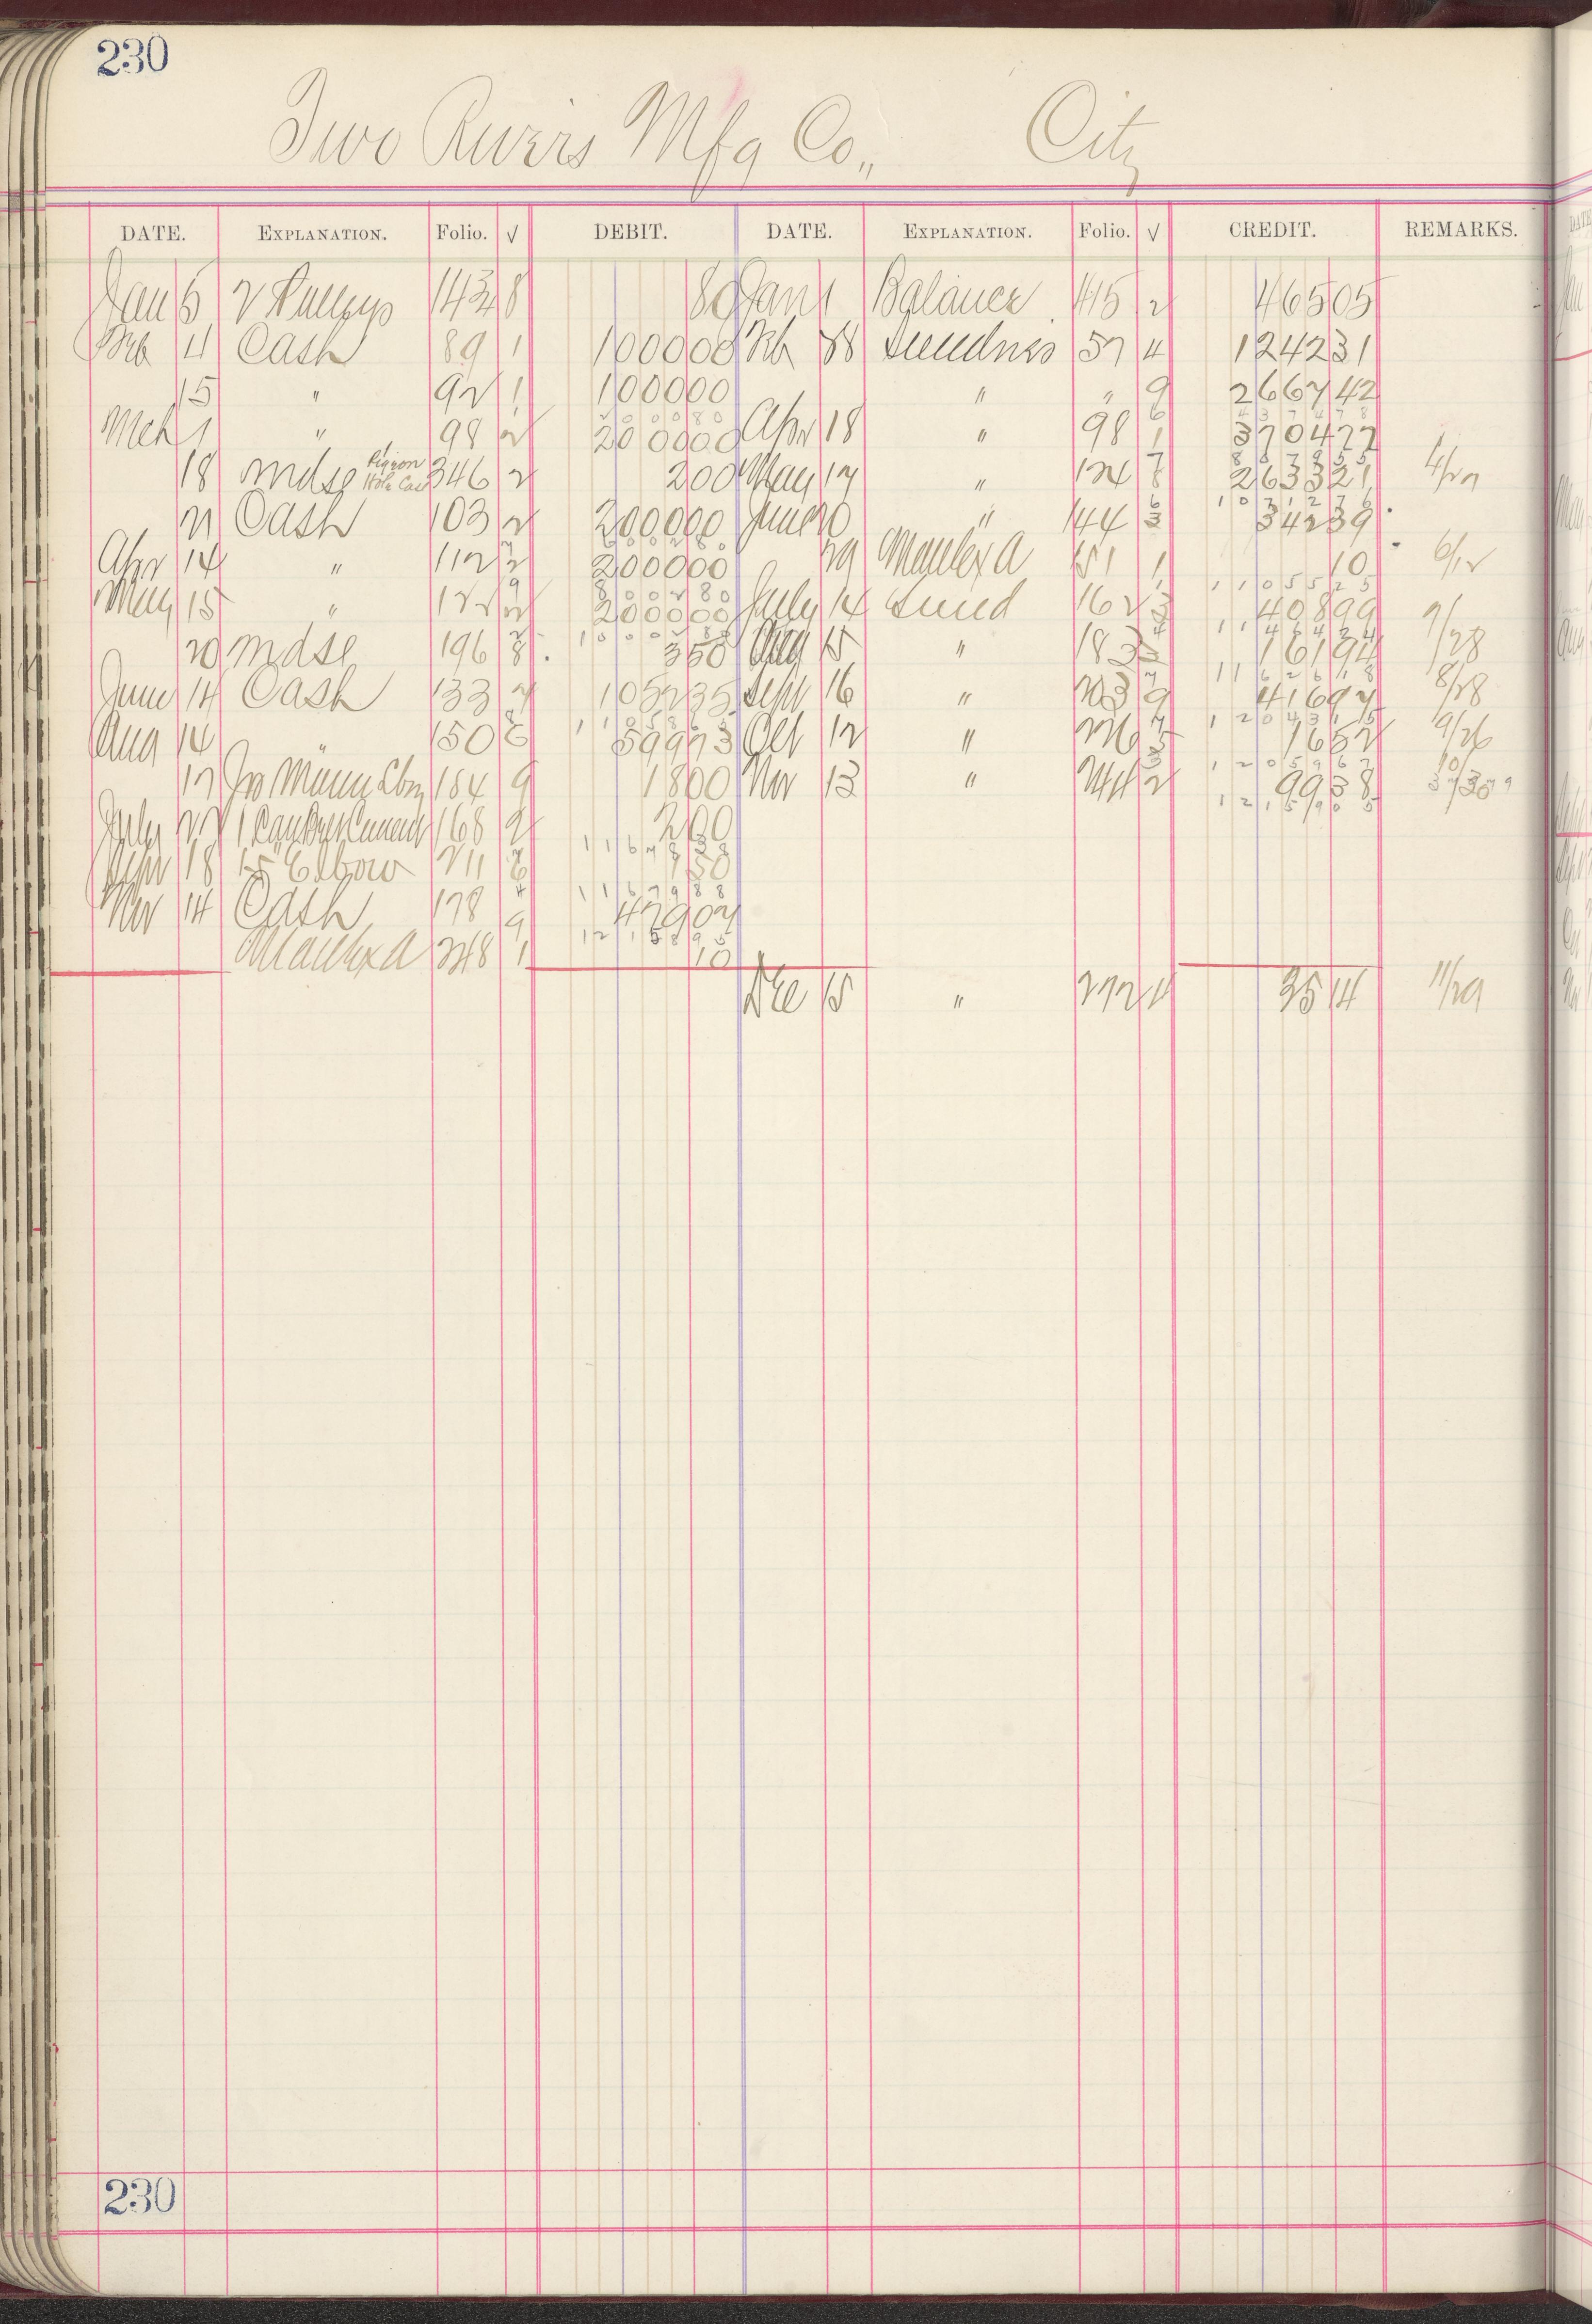 230
Two Rivers Mfg Co., City
DATE. EXPLANATION. Folio. √ DEBIT. DATE. EXPLANATION. Folio. √ CREDIT. REMARKS.
Jan 6 2 Pulleys 143 8 80 Jan 1 Balance 415 2 46505
Feb 4 Cash 89 1 100000 Feb 28 Sundries 57 4 124231
15 " 92 1 100000 " " 9 266742
Mch 1 " 98 2 200000 Apr 18 " 98 1 370477
18 Mdse Pigeon Hole Case 346 2 200 May 17 " 124 7 263321 4/27
21 Cash 103 2 200000 June 20 " 144 3 34239
Apr 14 " 112 2 200000 29 Manfx a 151 1 10 6/12
May 15 " 122 2 200000 July 14 Sund 162 3 40899
20 Mdse 196 8 350 Aug 15 " 183 16194 7/28
June 14 Cash 133 7 105235 Sept 16 " 203 9 41697 8/28
Aug 14 " 150 6 59973 Oct 12 " 1652 9/26
17 184 9 1800 Nov 13 " 244 2 9938
July 27 168 2 200
Sept 18 Elbow 211 150
Nov 14 Cash 178 9 47907
Manfx a 348 1 10
Dec 15 " 272 1 3514 11/29
230